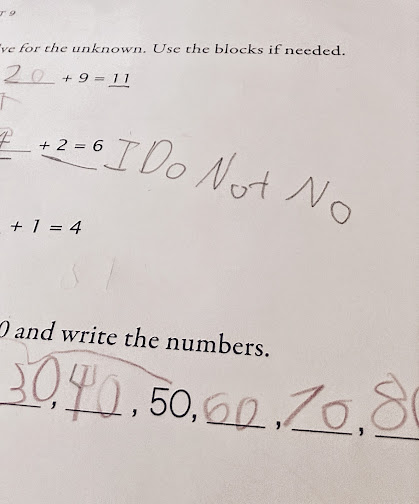 T 9
ve for the unknown. Use the blocks if needed.
20 + 9 = 11
4 + 2 = 6 I Do Not No
+ 1 = 4
0 and write the numbers.
30, 40, 50, 60, 70, 80